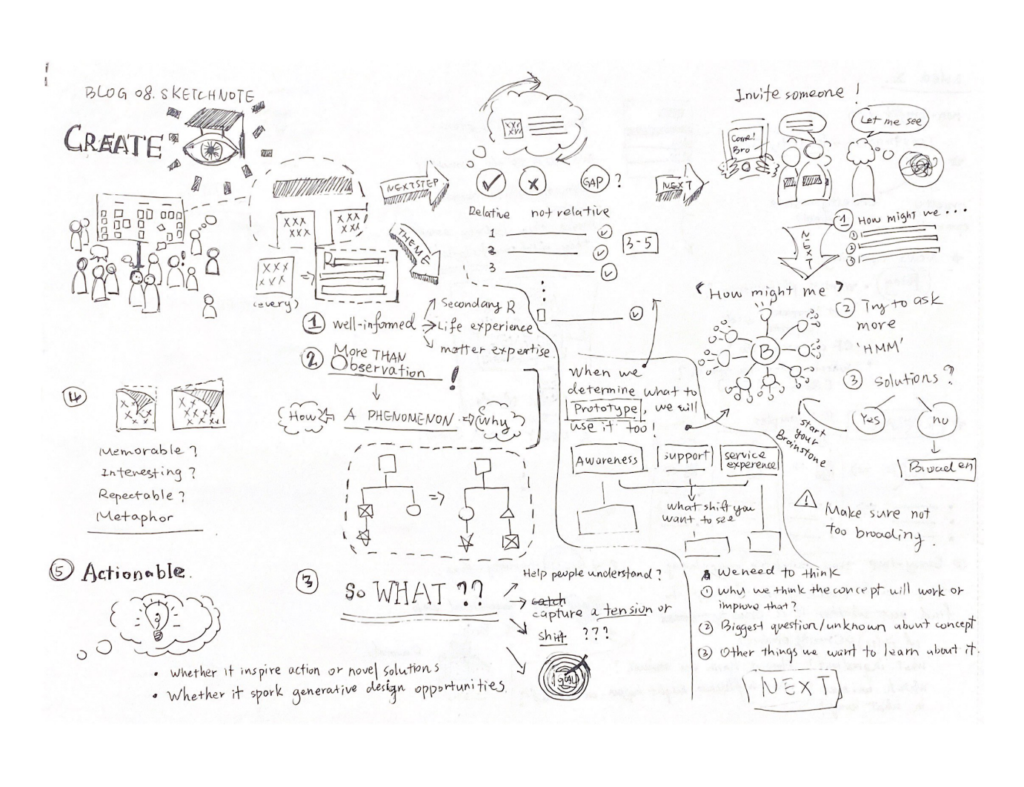 BLOG 08. SKETCHNOTE
CREATE
XXX
XXX
XXX
XXX
XXX
XXX
(every)
R
NEXTSTEP
THEME
XXX
XXX
GAP ?
Relative not relative
1
2
3
3-5
NEXT
Invite someone !
Come!
Bro
Let me see
NEXT
1 How might we ...
1
2
3
"How might me"
B
2 Try to ask
more
'HMM'
3 Solutions?
Yes
no
Broaden
start
your
Brainstone.
Make sure not
too broading.
1 well-informed
Secondary R
Life experience
matter expertise.
2 More THAN
Observation !
How
A PHENOMENON
Why?
When we
determine what to
Prototype, we will
use it too !
Awareness
support
service
experence
what shift you
want to see
3 So WHAT ??
Help people understand ?
catch
capture a tension or
shift ???
goal
4
Memorable ?
Interesting ?
Repectable ?
Metaphor
5 Actionable.
• Whether it inspire action or novel solutions
• Whether it spork generative design opportunities
We need to think
1 Why we think the concept will work or
improve that?
2 Biggest question/unknown about concept
3 Other things we want to learn about it.
NEXT